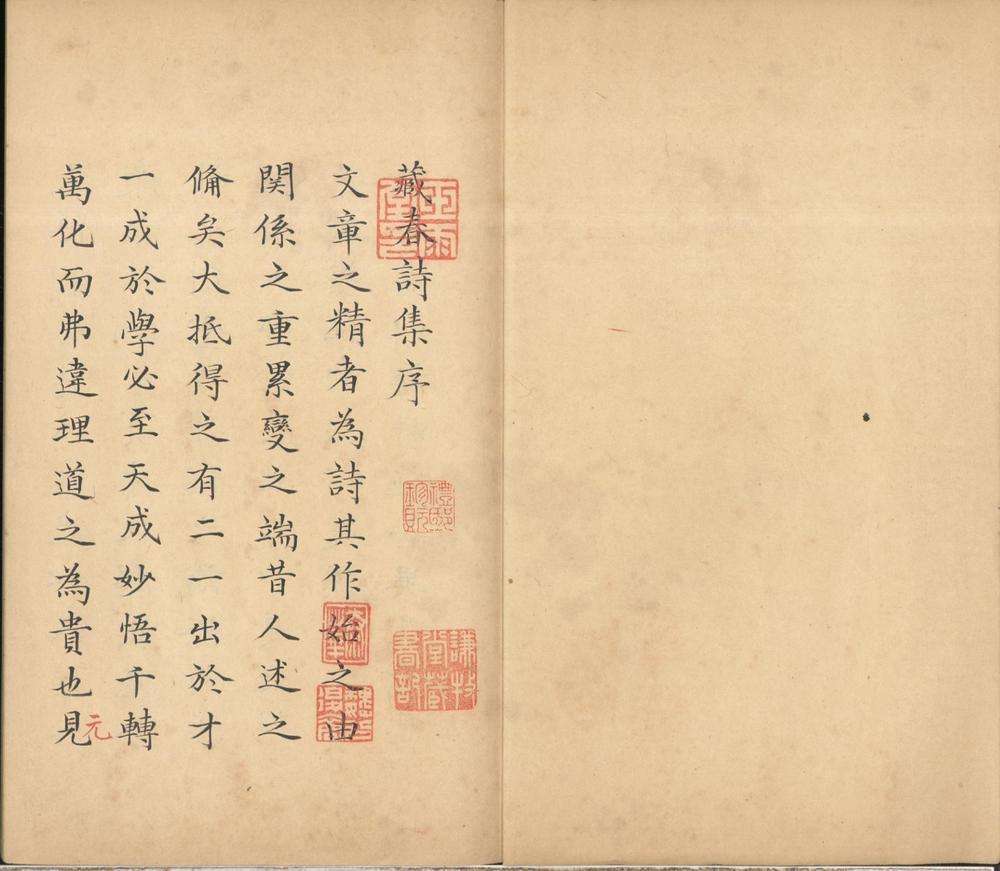 藏春詩集序
文章之精者為詩其作始之由
関係之重累變之端昔人述之
脩矣大抵得之有二一出於才
一成於學必至天成妙悟千轉
萬化而弗違理道之為貴也見
元
謙牧堂藏書記